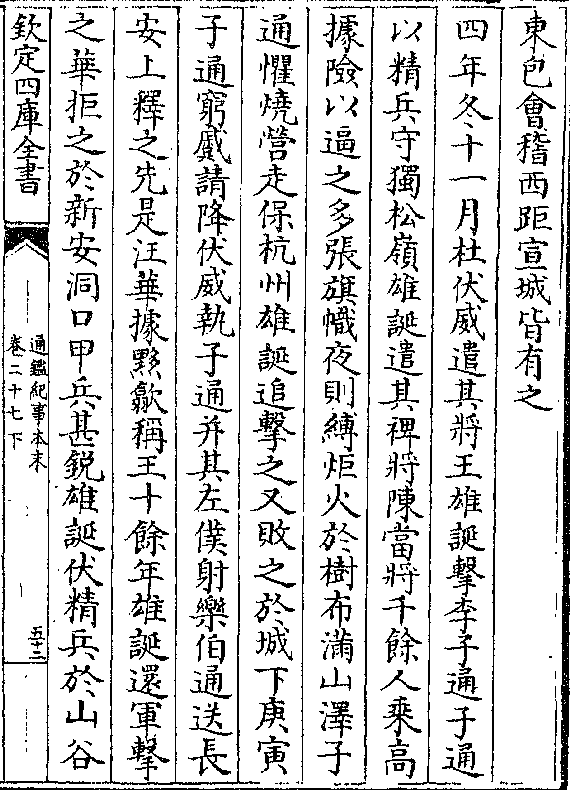 東包會稽西距宣城皆有之
四年冬十一月杜伏威遣其將王雄誕擊李子通子通
以精兵守獨松嶺雄誕遣其裨將陳當將千餘人乘高
據險以逼之多張旗幟夜則縛炬火於樹布滿山澤子
通懼燒營走保杭州雄誕追擊之又敗之於城下庚寅
子通窮蹙請降伏威執子通并其左僕射樂伯通送長
安上釋之先是汪華據黟歙稱王十餘年雄誕還軍擊
之華拒之於新安洞口甲兵甚銳雄誕伏精兵於山谷
欽定四庫全書
通鑑紀事本末
卷二十七下
五十二